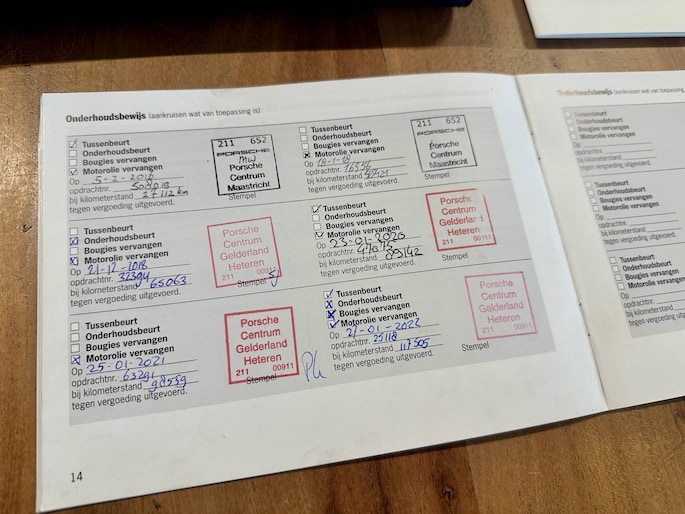 Onderhoudsbewijs (aankruisen wat van toepassing is)
Tussenbeurt
Onderhoudsbeurt
Bougies vervangen
Motorolie vervangen
Op 5-2-2016
opdrachtnr. 50401a
bij kilometerstand 27112 km
tegen vergoeding uitgevoerd.
211 652
PORSCHE
Porsche
Centrum
Maastricht
Stempel
Tussenbeurt
Onderhoudsbeurt
Bougies vervangen
Motorolie vervangen
Op 18-1-18
opdrachtnr. 76956
bij kilometerstand
tegen vergoeding uitgevoerd.
211 652
PORSCHE
Porsche
Centrum
Maastricht
Stempel
Tussenbeurt
Onderhoudsbeurt
Bougies vervangen
Motorolie vervangen
Op 21-12-1018
opdrachtnr. 32304
bij kilometerstand 65063
tegen vergoeding uitgevoerd.
Porsche
Centrum
Gelderland
Heteren
211 00911
Stempel
Tussenbeurt
Onderhoudsbeurt
Bougies vervangen
Motorolie vervangen
Op 23-01-2020
opdrachtnr. 47075
bij kilometerstand 89142
tegen vergoeding uitgevoerd.
Porsche
Centrum
Gelderland
Heteren
211 00911
Stempel
Tussenbeurt
Onderhoudsbeurt
Bougies vervangen
Motorolie vervangen
Op 25-01-2021
opdrachtnr. 63291
bij kilometerstand
tegen vergoeding uitgevoerd.
Porsche
Centrum
Gelderland
Heteren
211 00911
Stempel
Tussenbeurt
Onderhoudsbeurt
Bougies vervangen
Motorolie vervangen
Op 21-01-2022
opdrachtnr. 25118
bij kilometerstand 117505
tegen vergoeding uitgevoerd.
Porsche
Centrum
Gelderland
Heteren
211 00911
Stempel
14
Onderhoudsbewijs (aankruisen wat van toepassing
Tussenbeurt
Onderhoudsbeurt
Bougies vervangen
Motorolie vervangen
Op
opdrachtnr.
bij kilometerstand
tegen vergoeding uitgevoerd.
Tussenbeurt
Onderhoudsbeurt
Bougies vervangen
Motorolie vervangen
Op
opdrachtnr.
bij kilometerstand
tegen vergoeding uitgevoerd.
Tussenbeurt
Onderhoudsbeurt
Bougies vervangen
Motorolie vervangen
Op
opdrachtnr.
bij kilometerstand
tegen vergoeding uitgevoerd.